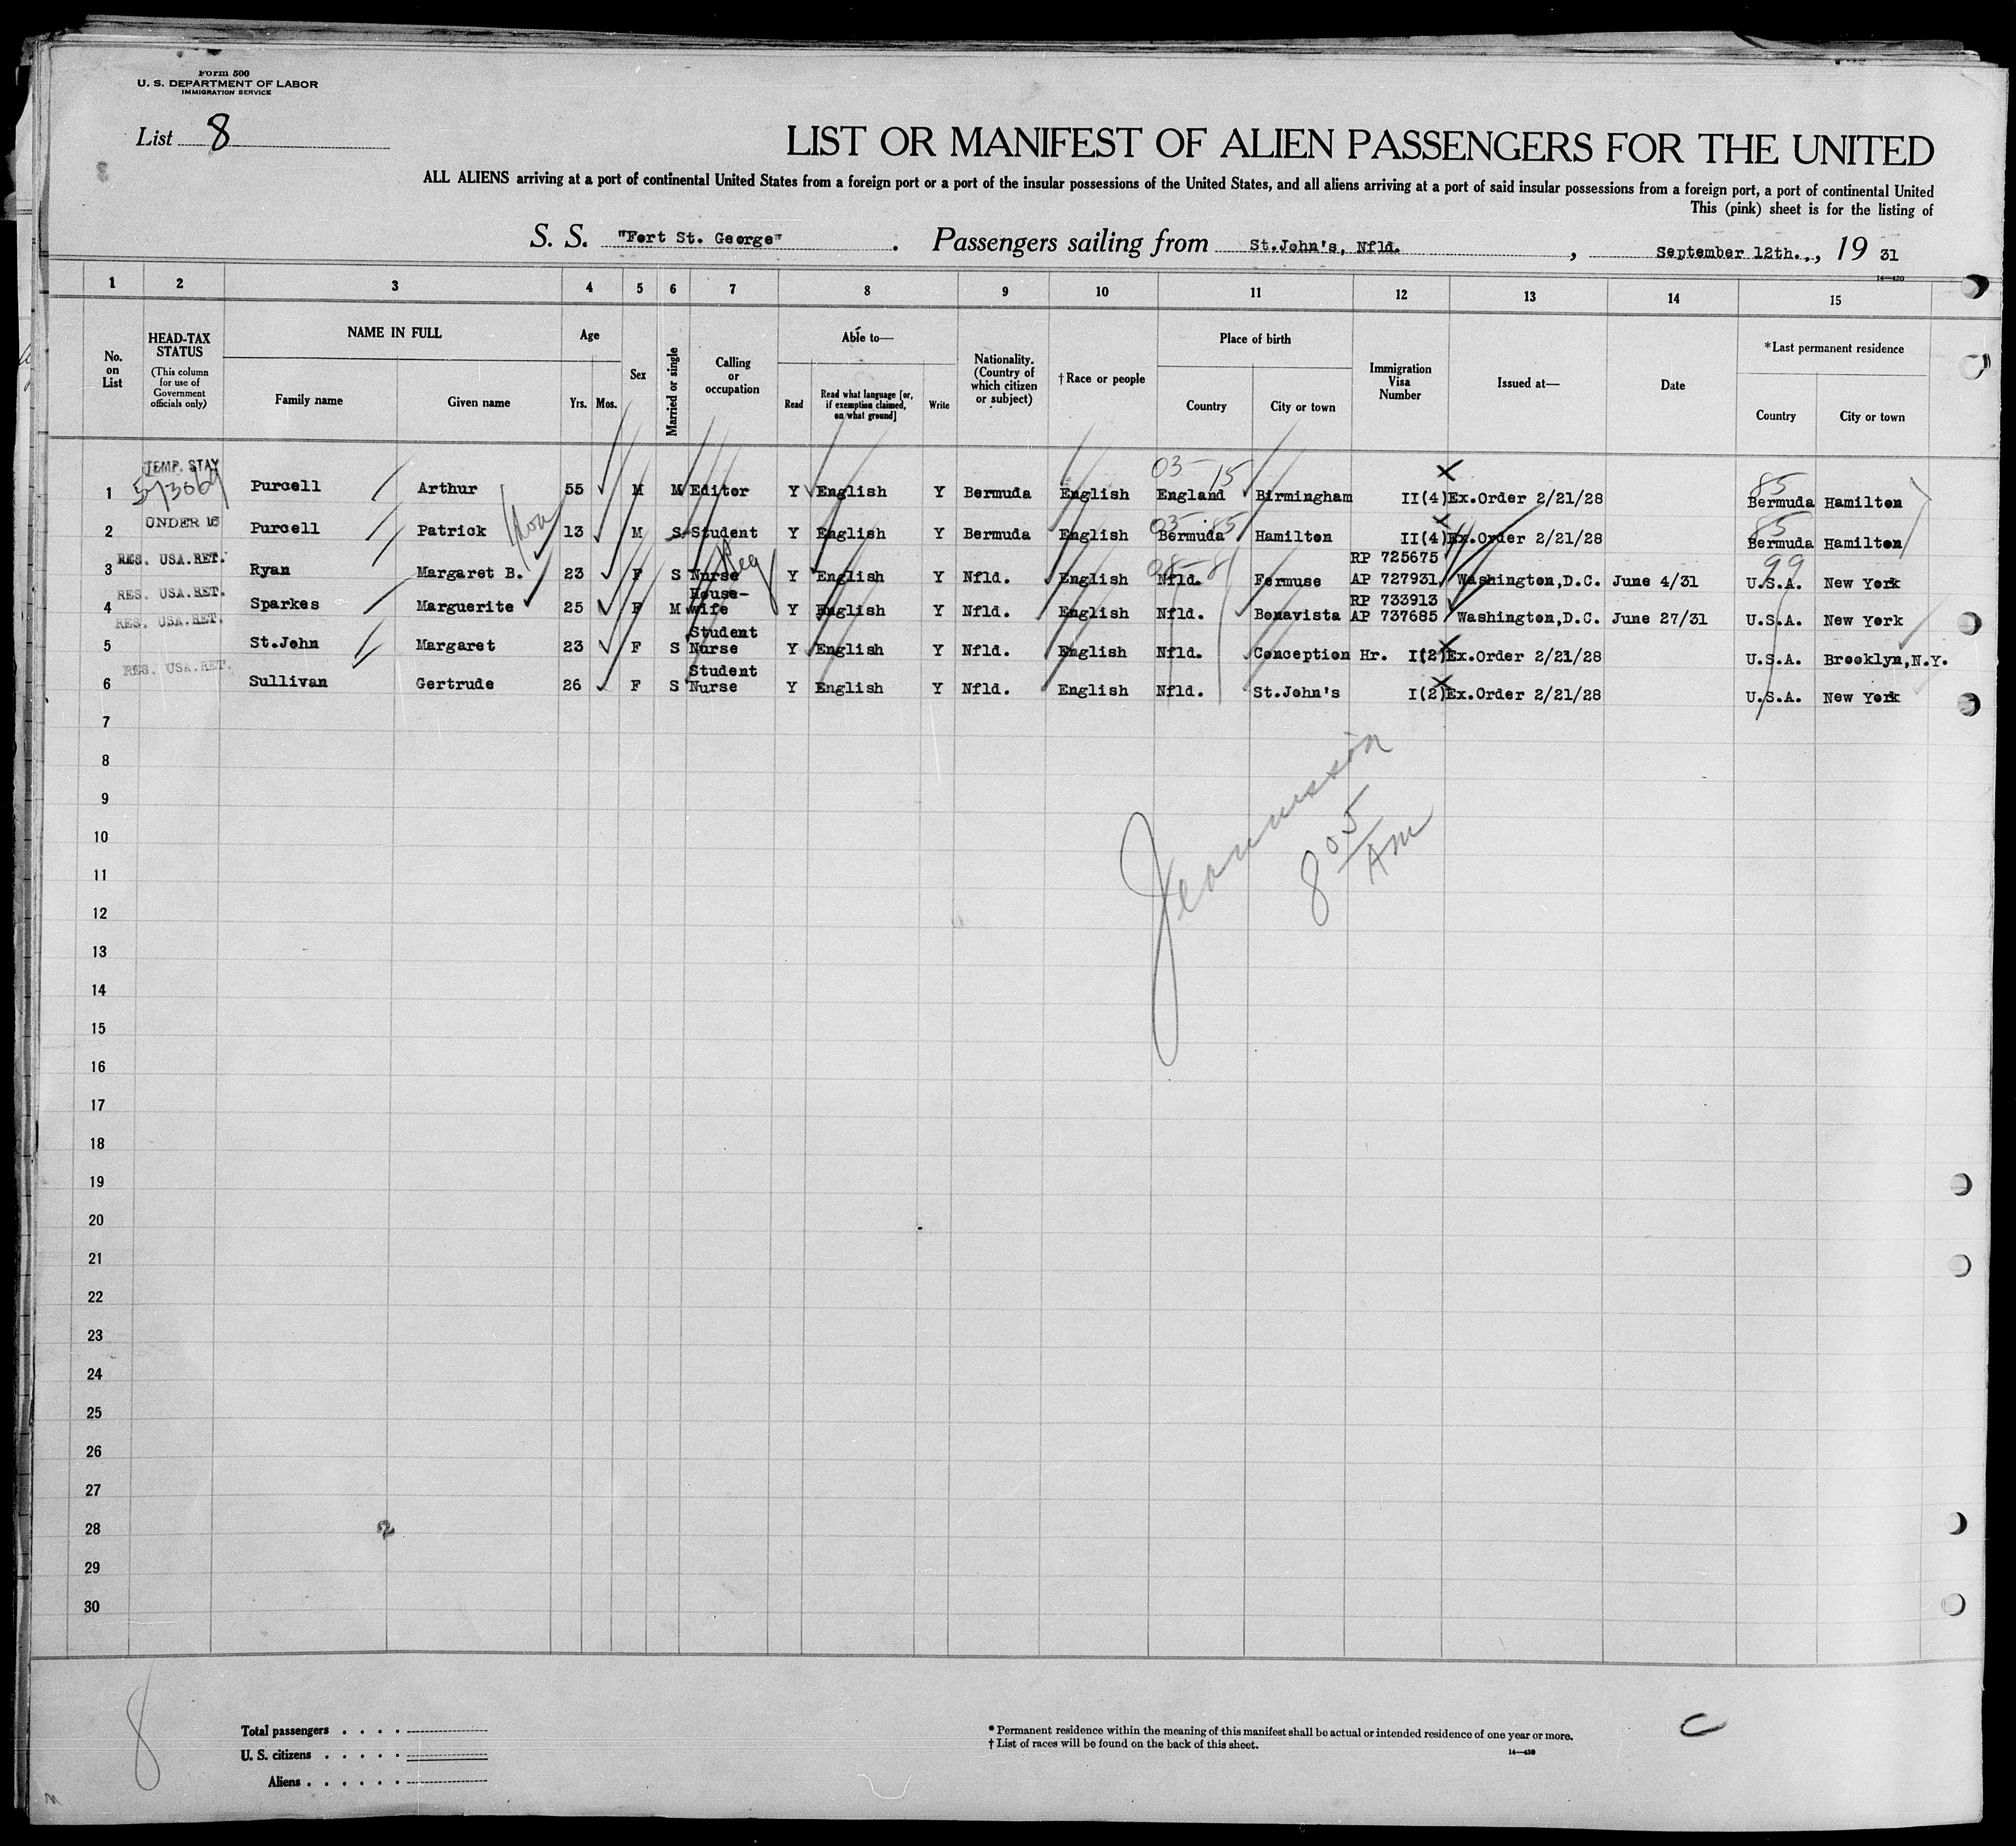 Form 500
U. S. DEPARTMENT OF LABOR
IMMIGRATION SERVICE
List 8
LIST OR MANIFEST OF ALIEN PASSENGERS FOR THE UNITED
ALL ALIENS arriving at a port of continental United States from a foreign port or a port of the insular possessions of the United States, and all aliens arriving at a port of said insular possessions from a foreign port, a port of continental United
This (pink) sheet is for the listing of
S. S. "Fort St. George" . Passengers sailing from St.John's, Nfld. , September 12th., , 19 31
14—430
1 2 3 4 5 6 7 8 9 10 11 12 13 14 15
No. on List
HEAD-TAX STATUS
(This column for use of Government officials only)
NAME IN FULL
Family name Given name
Age
Yrs. Mos.
Sex
Married or single
Calling or occupation
Able to—
Read
Read what language [or, if exemption claimed, on what ground]
Write
Nationality. (Country of which citizen or subject)
†Race or people
Place of birth
Country City or town
Immigration Visa Number
Issued at—
Date
*Last permanent residence
Country City or town
TEMP. STAY
03 15 85
1 573069 Purcell Arthur 55 M M Editor Y English Y Bermuda English England Birmingham II(4) Ex.Order 2/21/28 Bermuda Hamilton
UNDER 16
03 85 85
2 Purcell Patrick 13 M S Student Y English Y Bermuda English Bermuda Hamilton II(4) Ex.Order 2/21/28 Bermuda Hamilton
RES. USA.RET.
RP 725675
99
3 Ryan Margaret B. 23 F S Nurse Y English Y Nfld. English Nfld. Fermuse AP 727931 Washington,D.C. June 4/31 U.S.A. New York
RES. USA.RET.
House-
RP 733913
4 Sparkes Marguerite 25 F M wife Y English Y Nfld. English Nfld. Bonavista AP 737685 Washington,D.C. June 27/31 U.S.A. New York
RES. USA.RET.
Student
5 St.John Margaret 23 F S Nurse Y English Y Nfld. English Nfld. Conception Hr. I(2) Ex.Order 2/21/28 U.S.A. Brooklyn,N.Y.
RES. USA.RET.
Student
6 Sullivan Gertrude 26 F S Nurse Y English Y Nfld. English Nfld. St.John's I(2) Ex.Order 2/21/28 U.S.A. New York
7
8
9
10
11
8 05 AM
12
13
14
15
16
17
18
19
20
21
22
23
24
25
26
27
28
29
30
8
Total passengers . . . .
U. S. citizens . . . . .
Aliens . . . . . .
*Permanent residence within the meaning of this manifest shall be actual or intended residence of one year or more.
†List of races will be found on the back of this sheet.
14—430
C